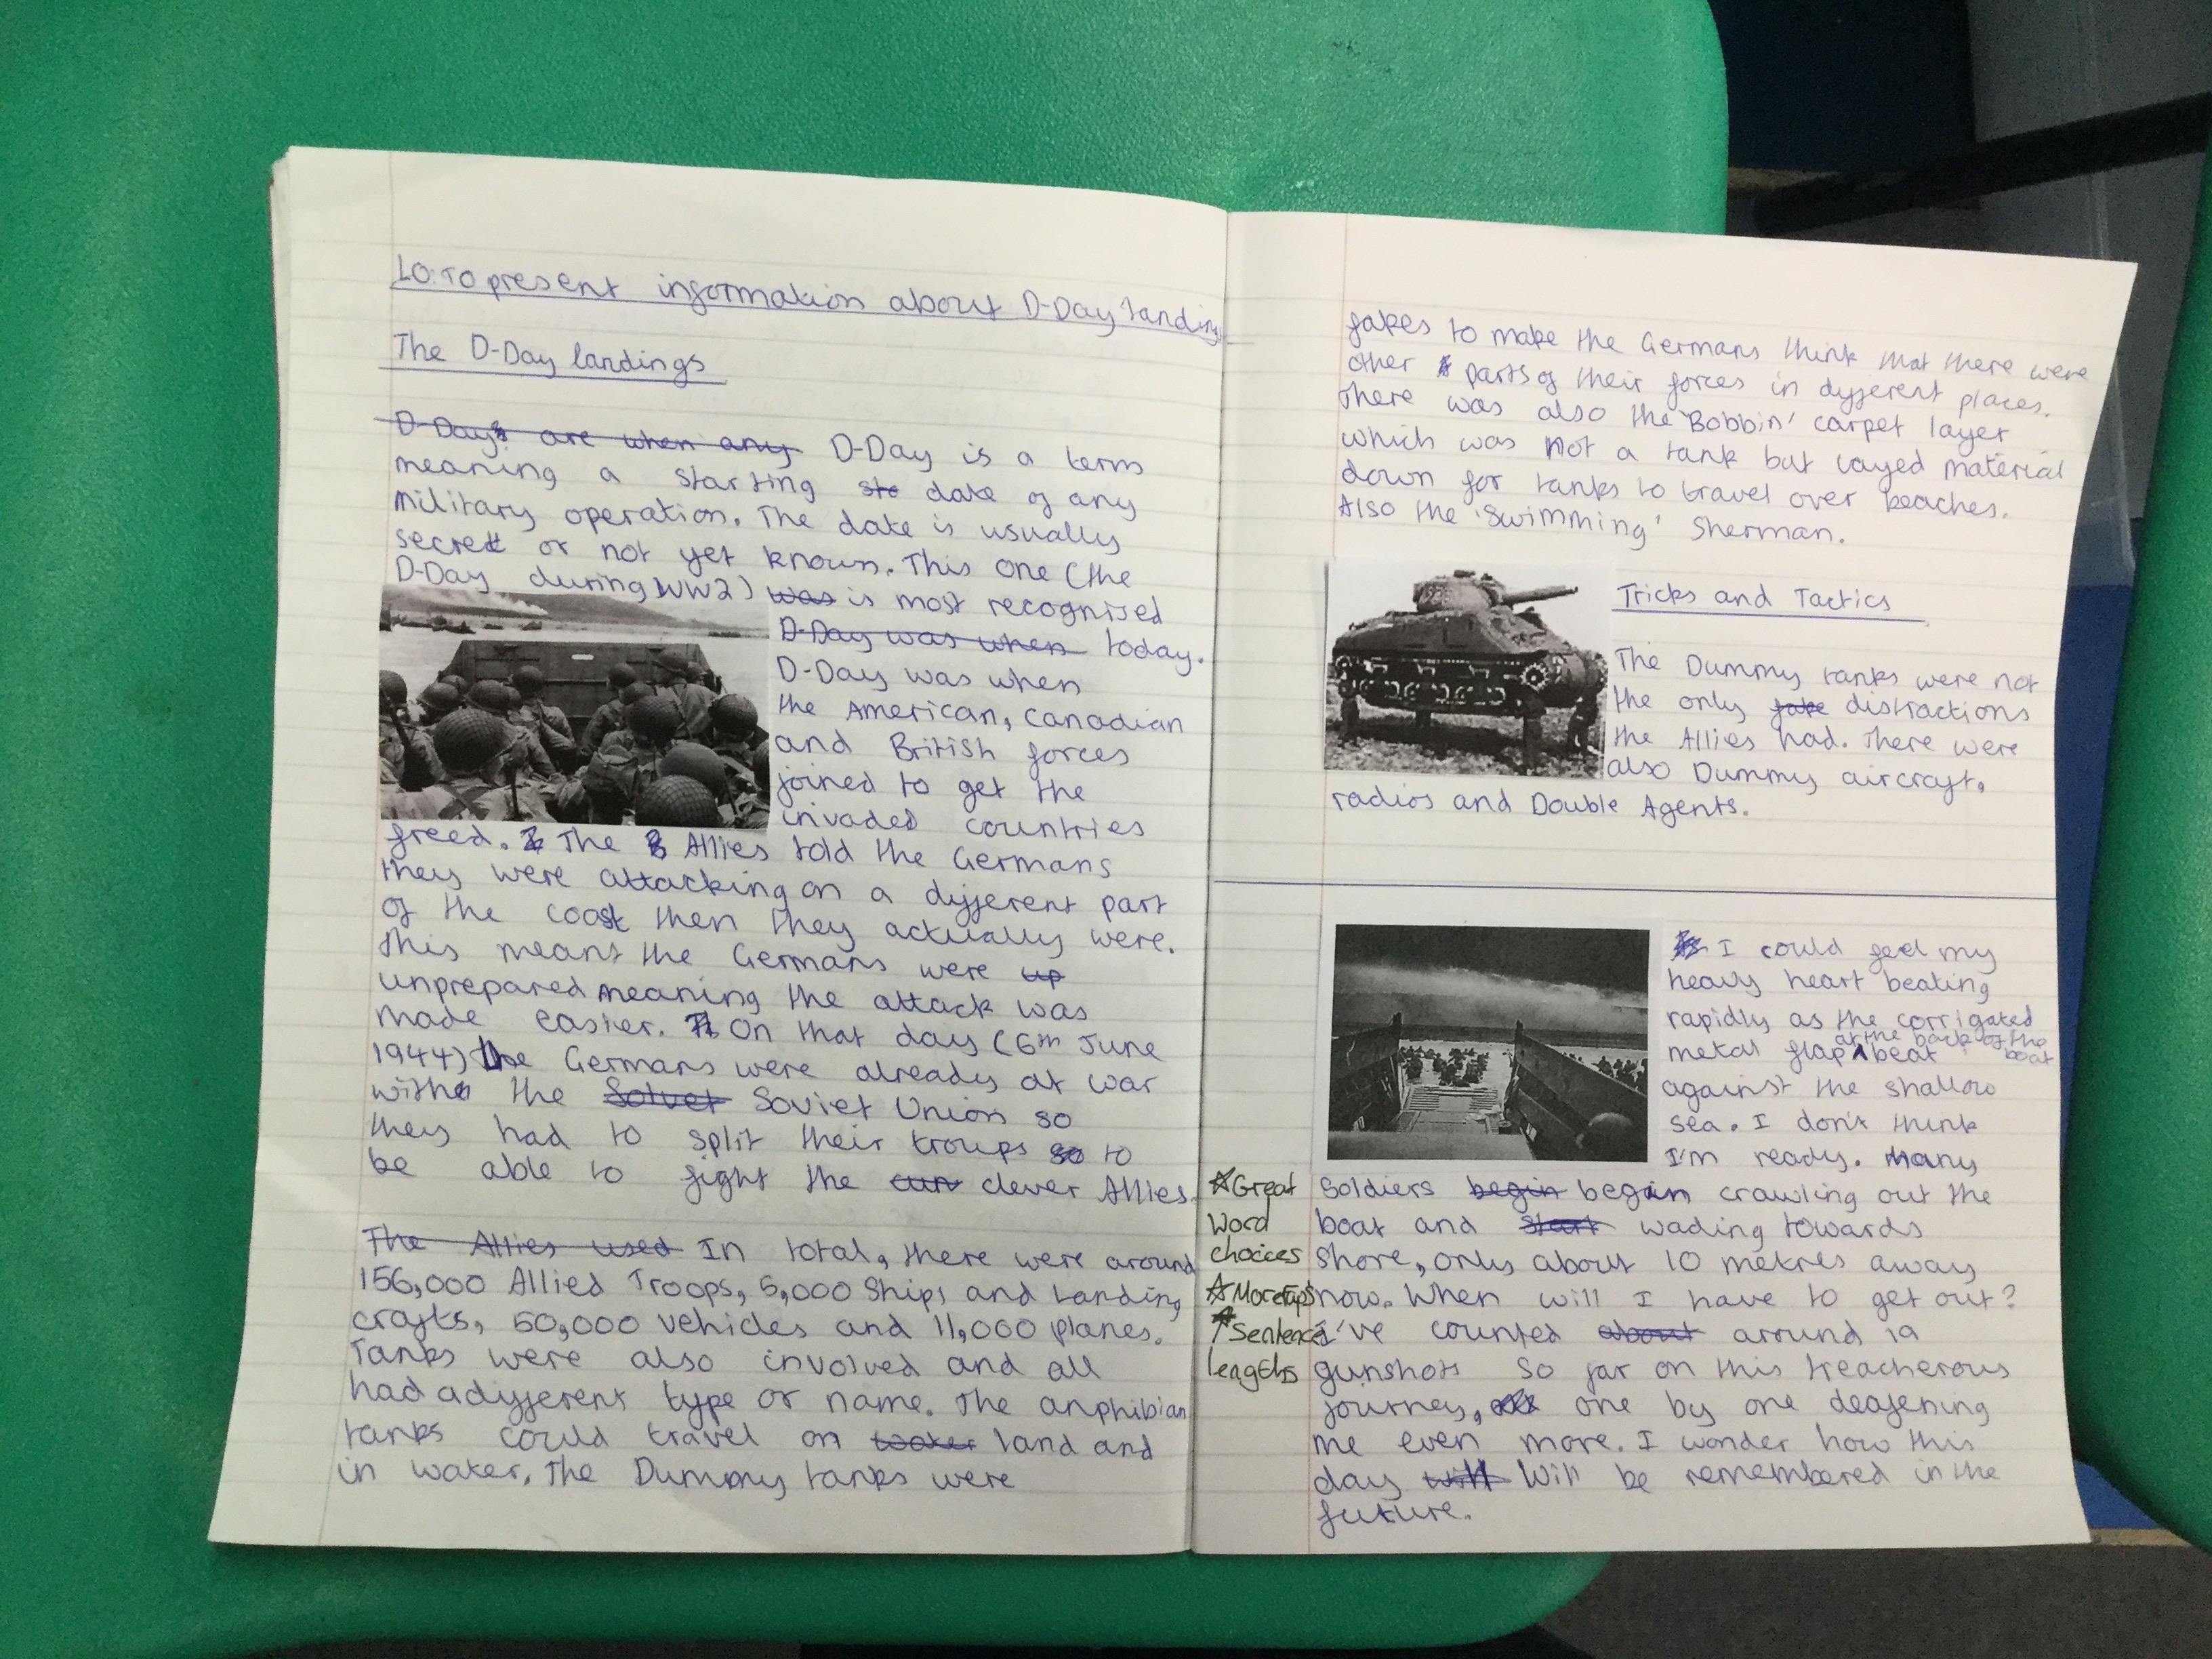 LO: To present information about D-Day landings
The D-Day landings
D-Day's are when any D-Day is a term
meaning a starting ste date of any
military operation. The date is usually
secret or not yet known. This one (the
D-Day during WW2) was is most recognised
D-Day was when today.
D-Day was when
the American, Canadian
and British forces
joined to get the
invaded countries
freed. The Allies told the Germans
they were attacking on a different part
of the coast then they actually were.
This means the Germans were up
unprepared meaning the attack was
made easier. On that day (6th June
1944) the Germans were already at war
with the Solvet Soviet Union so
they had to split their troups so to
be able to fight the cun clever Allies.
The Allies used In total, there were around
156,000 Allied Troops, 5,000 Ships and Landing
crafts, 50,000 vehicles and 11,000 planes.
Tanks were also involved and all
had a different type or name. The anphibian
tanks could travel on water land and
in water. The Dummy tanks were
fakes to make the Germans think that there were
other parts of their forces in different places.
There was also the 'Bobbin' carpet layer
which was not a tank but layed material
down for tanks to travel over beaches.
Also the 'Swimming' Sherman.
Tricks and Tactics
The Dummy tanks were not
the only fake distractions
the Allies had. There were
also Dummy aircraft,
radios and Double Agents.
I could feel my
heavy heart beating
rapidly as the corrigated
at the back of the boat
metal flap beat
against the shallow
sea. I don't think
I'm ready. Many
soldiers begin began crawling out the
boat and start wading towards
shore, only about 10 metres away
now. When will I have to get out?
I've counted about around 19
gunshots so far on this treacherous
journey, one by one deafening
me even more. I wonder how this
day will will be remembered in the
future.
Great
word
choices
More
Sentence
lengths